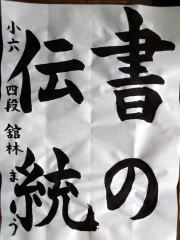 書の
伝統
小六 四段 舘林